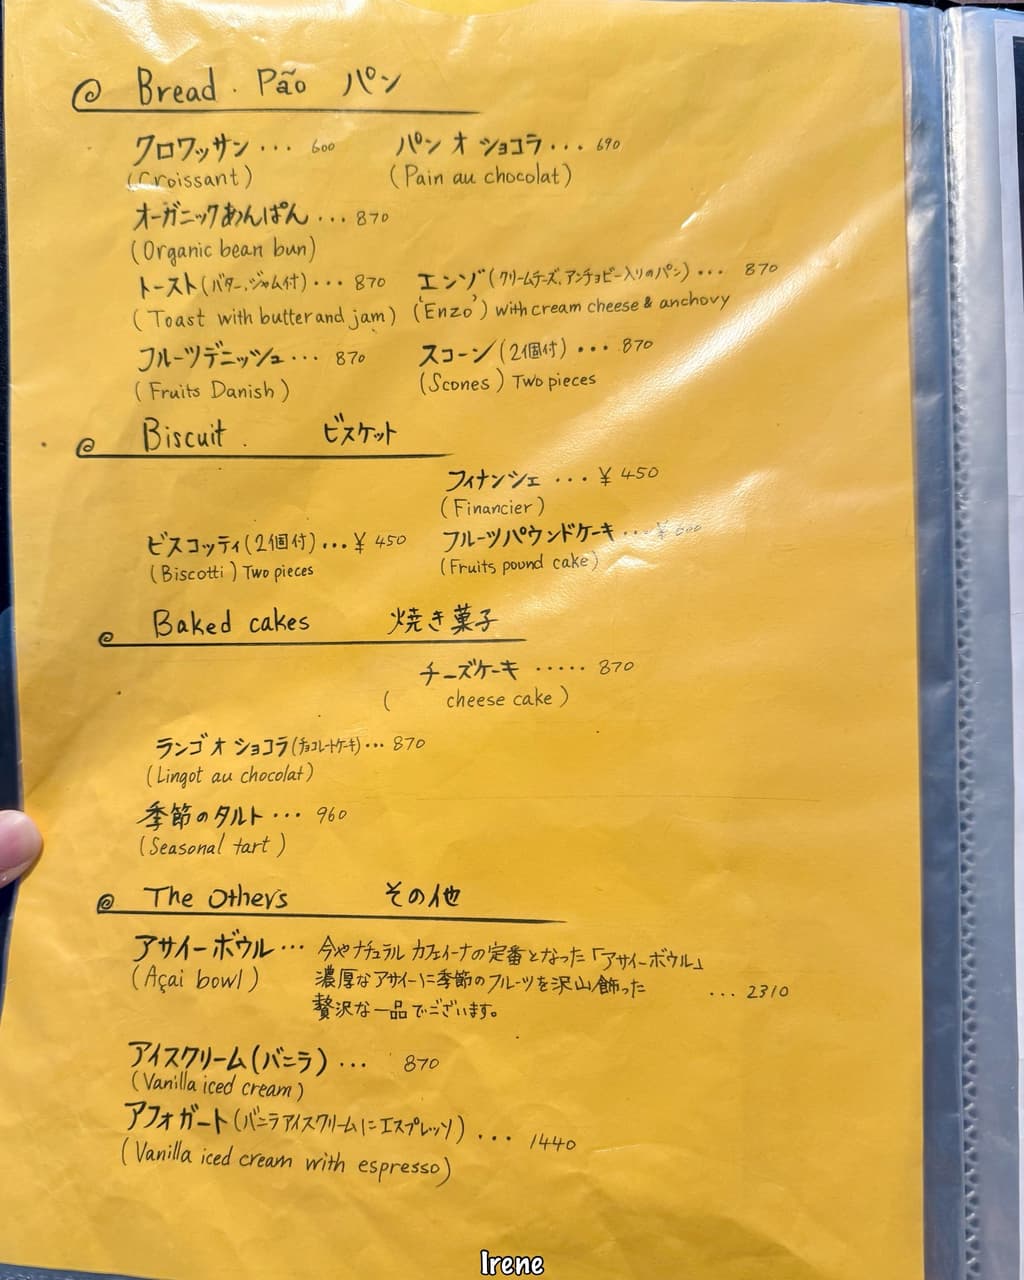 Bread . Pão パン
クロワッサン ... 600 パン オ ショコラ ... 690
(Croissant) (Pain au chocolat)
オーガニックあんぱん ... 870
(Organic bean bun)
トースト(バター、ジャム付) ... 870 エンゾ(クリームチーズ、アンチョビー入りのパン) ... 870
(Toast with butter and jam) ('Enzo') with cream cheese & anchovy
フルーツデニッシュ ... 870 スコーン(2個付) ... 870
(Fruits Danish) (Scones) Two pieces
Biscuit . ビスケット
フィナンシェ ... ¥450
(Financier)
ビスコッティ(2個付) ... ¥450 フルーツパウンドケーキ ... ¥600
(Biscotti) Two pieces (Fruits pound cake)
Baked cakes 焼き菓子
チーズケーキ ..... 870
( cheese cake )
ランゴ オ ショコラ(チョコレートケーキ) ... 870
(Lingot au chocolat)
季節のタルト ... 960
(Seasonal tart)
The Others その他
アサイーボウル ... 今やナチュラル カフェイーナの定番となった「アサイーボウル」
(Açai bowl) 濃厚なアサイーに季節のフルーツを沢山飾った ... 2310
贅沢な一品でございます。
アイスクリーム(バニラ) ... 870
(Vanilla iced cream)
アフォガート(バニラアイスクリームにエスプレッソ) ... 1440
(Vanilla iced cream with espresso)
Irene